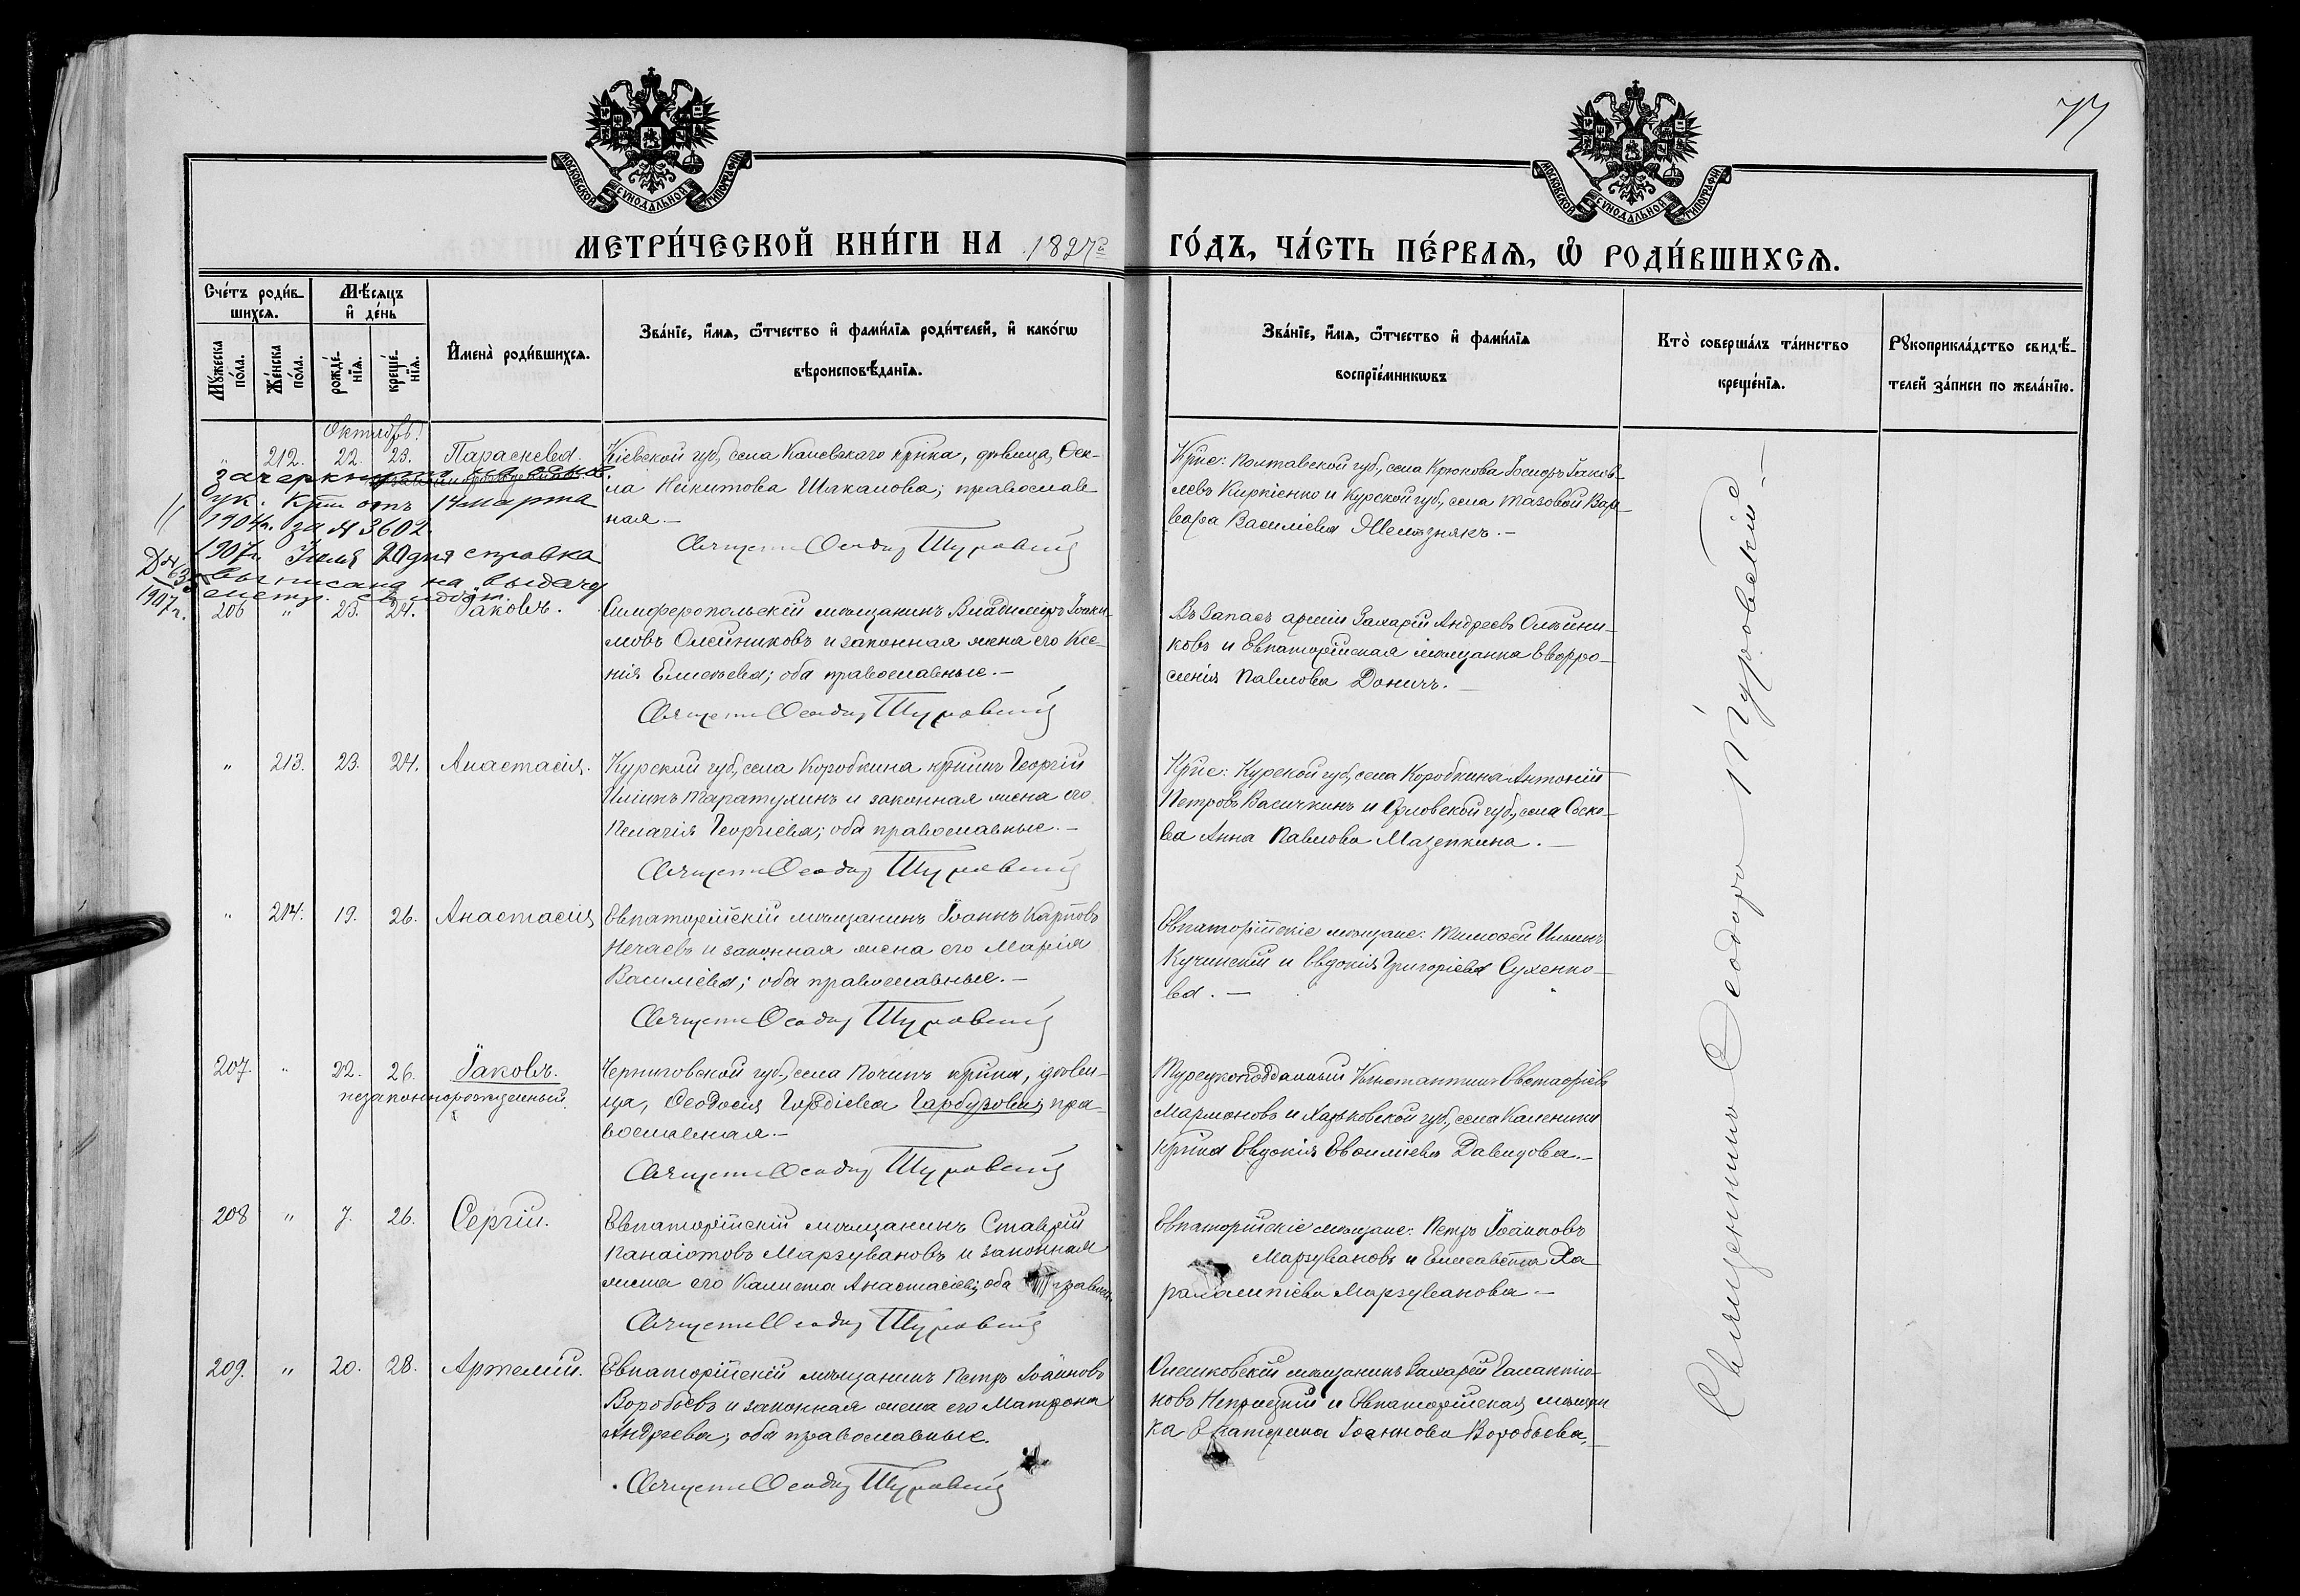 77
МОСКОВСКОЙ СѴНОДАЛЬНОЙ ТИПОГРАФІИ
МОСКОВСКОЙ СѴНОДАЛЬНОЙ ТИПОГРАФІИ
МЕТРИ́ЧЕСКОЙ КНИ́ГИ НА 1897й
ГО́ДЪ, ЧА́СТЬ ПЕ́РВАѦ, Ѿ РОДИ́ВШИХСѦ.
Сче́тъ роди́в-
шихсѧ.
Мѣ́сяцъ
и де́нь
Мꙋ́жеска по́ла.
Же́нска по́ла.
рожде́-
нїѧ.
креще́-
нїѧ.
Имена̀ роди́вшихсѧ.
Зва́нїе, и́мѧ, ѻ҆́тчество и҆ фами́лїѧ роди́телей, и҆ како́гѡ
вѣроисповѣ́данїѧ.
Зва́нїе, и́мѧ, ѻ҆́тчество и҆ фами́лїѧ
воспрїе́мникѡвъ
Кто̀ соверша́лъ та́инство
креще́нїѧ.
Рꙋкоприкла́дство свидѣ́-
телей за́писи по жела́нїю.
Октябрь.
" 212. 22. 23. Параскева.
Кіевской губ., села Каневскаго крѣнка, дѣвица, Ѳек-
ла Никитова Шакалова; православ
ная.-
Священ. Ѳеодоръ Шуровскій
Крѣе: Полтавской губ., села Крюкова Іосифъ Іаков-
левъ Кирѣенко и Курской губ., села Тазовой Вар-
вара Василіева Желѣзнякъ.-
зачеркнуто
ук. Крым отъ 14 марта
1904 г. за № 3602.
1907 г. Іюля 20 дня справка
выписана на выдачу
1907 г.
206 " 23. 24. Іаковъ.
Симферопольскій мѣщанинъ Владиміръ Іоаки-
мовъ Олейниковъ и законная жена его Ксе-
нія Елисѣева; оба православные.-
Священ. Ѳеодоръ Шуровскій
Въ запасѣ арміи Захарій Андреевъ Олѣйни-
ковъ и Евпаторійская мѣщанка Евфро-
синія Павлова Доничъ.-
" 213. 23. 24. Анастасія.
Курской губ., села Коробкина крѣнинъ Георгій
Иліинъ Таратухинъ и законная жена его
Пелагія Георгіева; оба православные.-
Священ. Ѳеодоръ Шуровскій
Крѣе: Курской губ., села Коробкина Антоній
Петровъ Васичкинъ и Орловской губ., села Соско-
ва Анна Павлова Мазепкина.-
" 214. 19. 26. Анастасія
Евпаторійскій мѣщанинъ Іоаннъ Карповъ
Нечаевъ и законная жена его Марія
Василіева; оба православные.-
Священ. Ѳеодоръ Шуровскій
Евпаторійскіе мѣщане: Тимоѳей Ильинъ
Кучинскій и Евдокія Григоріева Сухенко-
ва.-
207. " 22. 26. Іаковъ.
незаконнорожденный.
Черниговской губ., села Почипъ крѣнка, дѣви-
ца, Ѳеодосія Гордіева Гарбузова; пра-
вославная.-
Священ. Ѳеодоръ Шуровскій
Турецкоподданный Константинъ Евстафіевъ
Мармоновъ и Харьковской губ., села Каменики
крѣнка Евдокія Евсиліева Давидова.-
208 " 7. 26. Сергій.
Евпаторійскій мѣщанинъ Ставрій
Панаіотовъ Марзувановъ и законная
жена его Калиста Анастасіева; оба правосл.
Священ. Ѳеодоръ Шуровскій
Евпаторійскіе мѣщане: Петръ Іоанновъ
Марзувановъ и Елисавета Ха-
ралампіева Марзуванова-
209. " 20. 28. Артемій.
Евпаторійскій мѣщанинъ Петръ Іоанновъ
Воробьевъ и законная жена его Матрона
Андреева; оба православные.
Священ. Ѳеодоръ Шуровскій
Олешковскій мѣщанинъ Захарій Галактіо-
новъ Непрѣцкій и Евпаторійская мѣщан
ка Екатерина Іоаннова Воробьева.-
Священникъ Ѳеодоръ Шуровскій-